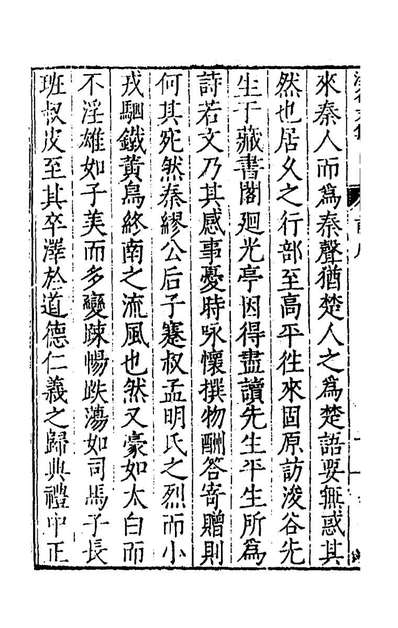 來秦人而爲秦聲猶楚人之爲楚語要無惑其
然也居久之行部至高平往來固原訪浚谷先
生于藏書閣廻光亭因得盡讀先生平生所爲
詩若文乃其感事憂時咏懷撰物酬答寄贈則
何其宛然秦繆公后子蹇叔孟明氏之烈而小
戎駟鐵黃鳥終南之流風也然又豪如太白而
不淫雄如子美而多變踈暢跌蕩如司馬子長
班叔皮至其卒澤於道德仁義之歸典禮中正